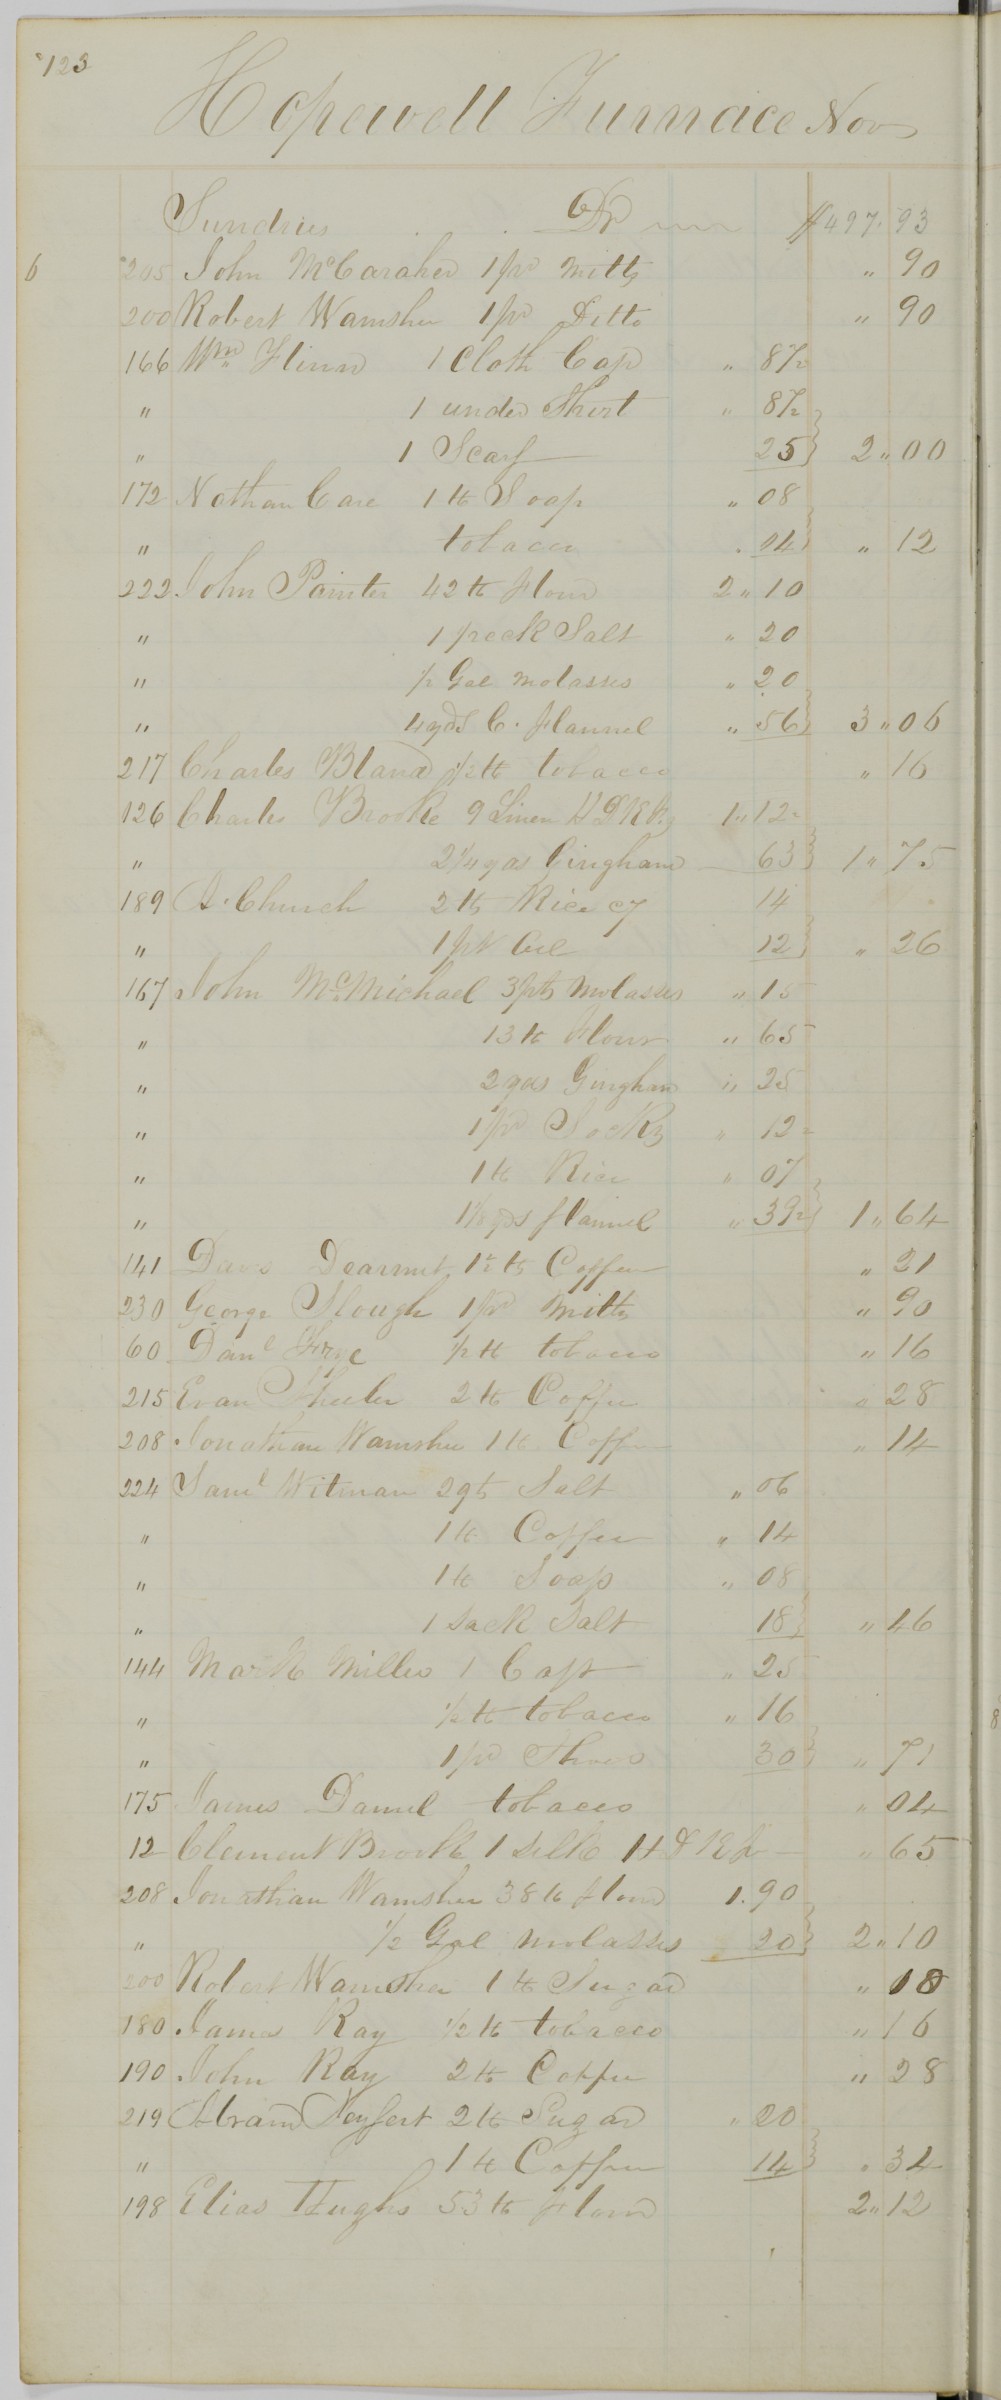 123
Hopewell Furnace Nov
Sundries . . Dr $497.93
6 205 John McCaraher 1 pr mitts " 90
200 Robert Wamsher 1 pr Ditto " 90
166 Wm Flinn 1 Cloth Cap " 87½
" 1 under Shirt " 87½
" 1 Scarf 25 2 " 00
172 Nathan Care 1 lb Soap " 08
" tobacco . 04 " 12
222 John Painter 42 lb flour 2 " 10
" 1 peck Salt " 20
" ½ Gal molasses " 20
" 4 yds C. flannel " 56 3 " 06
217 Charles Bland ½ lb tobacco " 16
126 Charles Brooke 9 Linen HDKfs 1 " 12
" 2¼ yds Gingham 63 1 " 75
189 Church 2 lb Rice 14
" 1 pt 12 " 26
167 John McMichael 3 pts molasses " 15
" 13 lb flour " 65
" 2 yds Gingham " 25
" 1 pr Socks " 12
" 1 lb Rice " 07
" yds flannel " 39½ 1 " 64
141 1½ lb Coffee " 21
230 George Slough 1 pr mitts " 90
60 Danl ½ lb tobacco " 16
215 Evan Wheeler 2 lb Coffee " 28
208 Jonathan Wamsher 1 lb Coffee " 14
224 Saml Witman 2 qts Salt " 06
" 1 lb Coffee " 14
" 1 lb Soap " 08
" 1 Sack Salt 18 " 46
144 Mark Miller 1 Cap " 25
" ½ lb tobacco " 16
" 1 pr 30 " 71
175 James Daniel tobacco " 04
12 Clement Brooke 1 silk HDKf " 65
208 Jonathan Wamsher 38 lb flour 1.90
" ½ Gal molasses 20 2 " 10
200 Robert Wamsher 1 lb Sugar " 10
180 James Ray ½ lb tobacco " 16
190 John Ray 2 lb Coffee " 28
219 Abram Neyfert 2 lb Sugar " 20
" 1 lb Coffee 14 " 34
198 Elias Hughs 53 lb flour 2 " 12